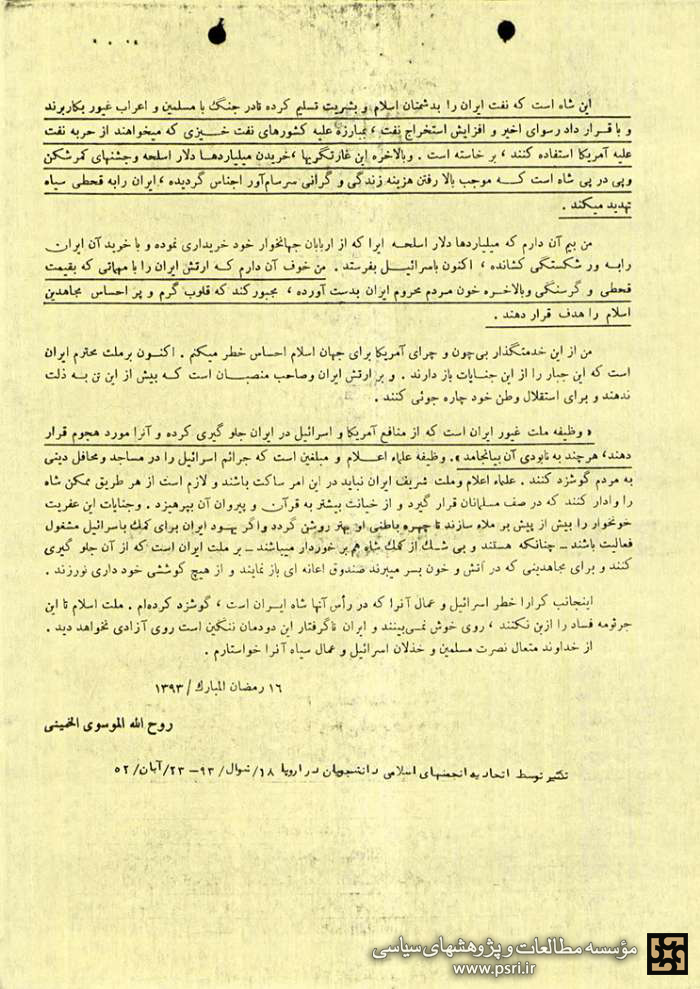 این شاه است که نفت ایران را بدشمنان اسلام و بشریت تسلیم کرده تادر جنگ با مسلمین و اعراب غیور بکاربرند
و با قرار داد رسوای اخیر و افزایش استخراج نفت ، بمبارزه علیه کشورهای نفت خیزی که میخواهند از حربه نفت
علیه آمریکا استفاده کنند ، بر خاسته است . وبالاخره این غارتگریها ،خریدن میلیاردها دلار اسلحه وجشنهای کمرشکن
وپی در پی شاه است که موجب بالا رفتن هزینه زندگی و گرانی سرسام‌آور اجناس گردیده ،ایران رابه قحطی سیاه
تهدید میکند .
من بیم آن دارم که میلیاردها دلار اسلحه ایرا که از اربابان جهانخوار خود خریداری نموده و با خرید آن ایران
رابه ور شکستگی کشانده ، اکنون باسرائیل بفرستد . من خوف آن دارم که ارتش ایران را با مهماتی که بقیمت
قحطی و گرسنگی وبالاخره خون مردم محروم ایران بدست آورده ، مجبورکند که قلوب گرم و پر احساس مجاهدین
اسلام را هدف قرار دهند .
من از این خدمتگذار بی‌چون و چرای آمریکا برای جهان اسلام احساس خطر میکنم . اکنون برملت محترم ایران
است که این جبار را از این جنایات باز دارند . و بر ارتش ایران وصاحب منصبان است که بیش از این تن به ذلت
ندهند و برای استقلال وطن خود چاره جوئی کنند .
« وظیفه ملت غیور ایران است که از منافع آمریکا و اسرائیل در ایران جلو گیری کرده و آنرا مورد هجوم قرار
دهند، هرچند به نابودی آن بیانجامد ». وظیفه علماء اعلام و مبلغین است که جرائم اسرائیل را در مساجد ومحافل دینی
به مردم گوشزد کنند . علماء اعلام وملت شریف ایران نباید در این امر ساکت باشند و لازم است از هر طریق ممکن شاه
را وادار کنند که در صف مسلمانان قرار گیرد و از خیانت بیشتر به قرآن و پیروان آن بپرهیزد . وجنایات این عفریت
خونخوار را بیش از پیش بر ملاء سازند تا چهره باطنی او بهتر روشن گردد واگر یهود ایران برای کمك باسرائیل مشغول
فعالیت باشند ــ چنانکه هستند و بی شك از کمك شاه هم بر خوردار میباشند ــ بر ملت ایران است که از آن جلو گیری
کنند و برای مجاهدینی که در آتش و خون بسر میبرند صندوق اعانه ای باز نمایند و از هیچ کوششی خود داری نورزند .
اینجانب کرارا خطر اسرائیل و عمال آنرا که در رأس آنها شاه ایران است ، گوشزد کرده‌ام . ملت اسلام تا این
جرثومه فساد را ازبن نکنند ، روی خوش نمی‌بینند و ایران تاگرفتار این دودمان ننگین است روی آزادی نخواهد دید .
از خداوند متعال نصرت مسلمین و خذلان اسرائیل و عمال سیاه آنرا خواستارم .
۱۶ رمضان المبارك / ۱۳۹۳
روح الله الموسوی الخمینی
تکثیر توسط اتحادیه انجمنهای اسلامی دانشجویان در اروپا ۱۸/ شوال/ ۹۳- ۲۳/آبان/ ۵۲
مؤسسه مطالعات و پژوهشهای سیاسی
www.psri.ir